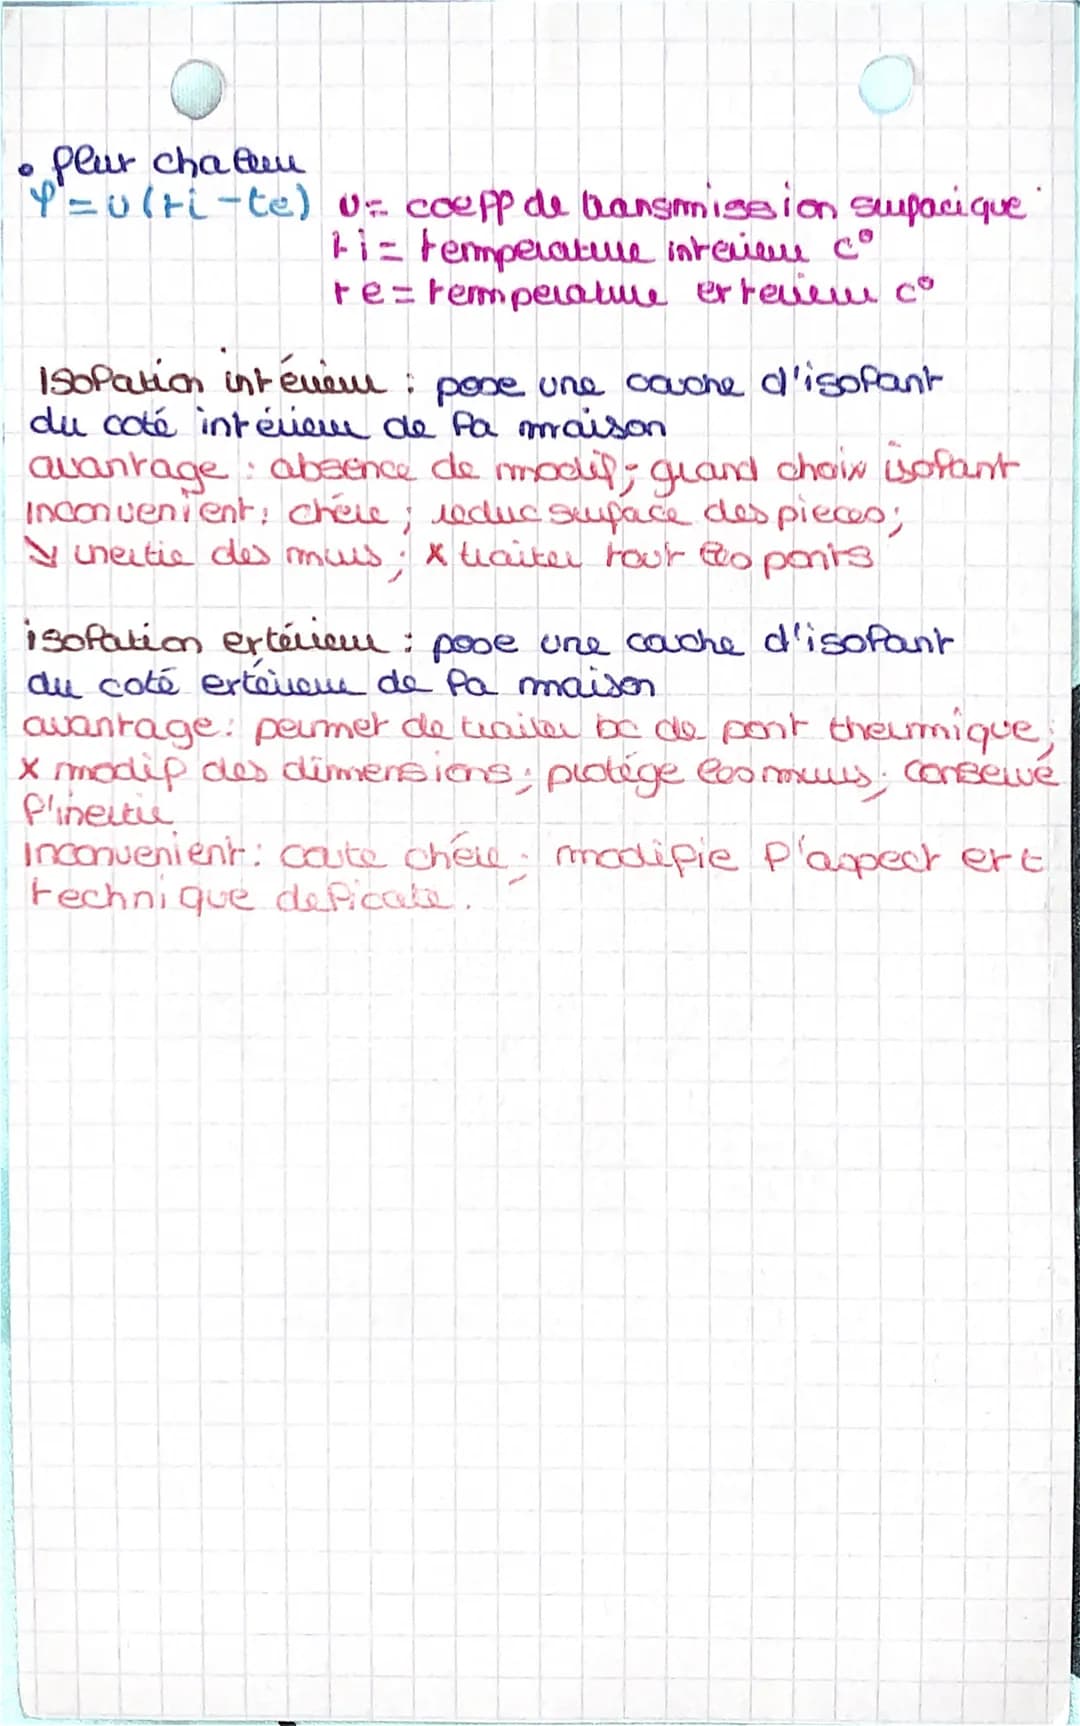 • flux chaleur
φ = U (ti - te) U = coeff de transmission surfacique
ti = temperature interieur C°
te = temperature exterieur C°
Isolation intérieur : pose une couche d'isolant
du coté intérieur de la maison
avantage : absence de modif ; grand choix isolant
inconvenient : chère ; reduc surface des pieces ;
↘ inertie des murs ; x traiter tout les ponts
isolation extérieur : pose une couche d'isolant
du coté extérieur de la maison
avantage : permet de traiter bc de pont thermique ;
x modif des dimensions ; protége les murs ; conserve
l'inertie
inconvenient : coute chére ; modifie l'aspect ext
technique delicate.